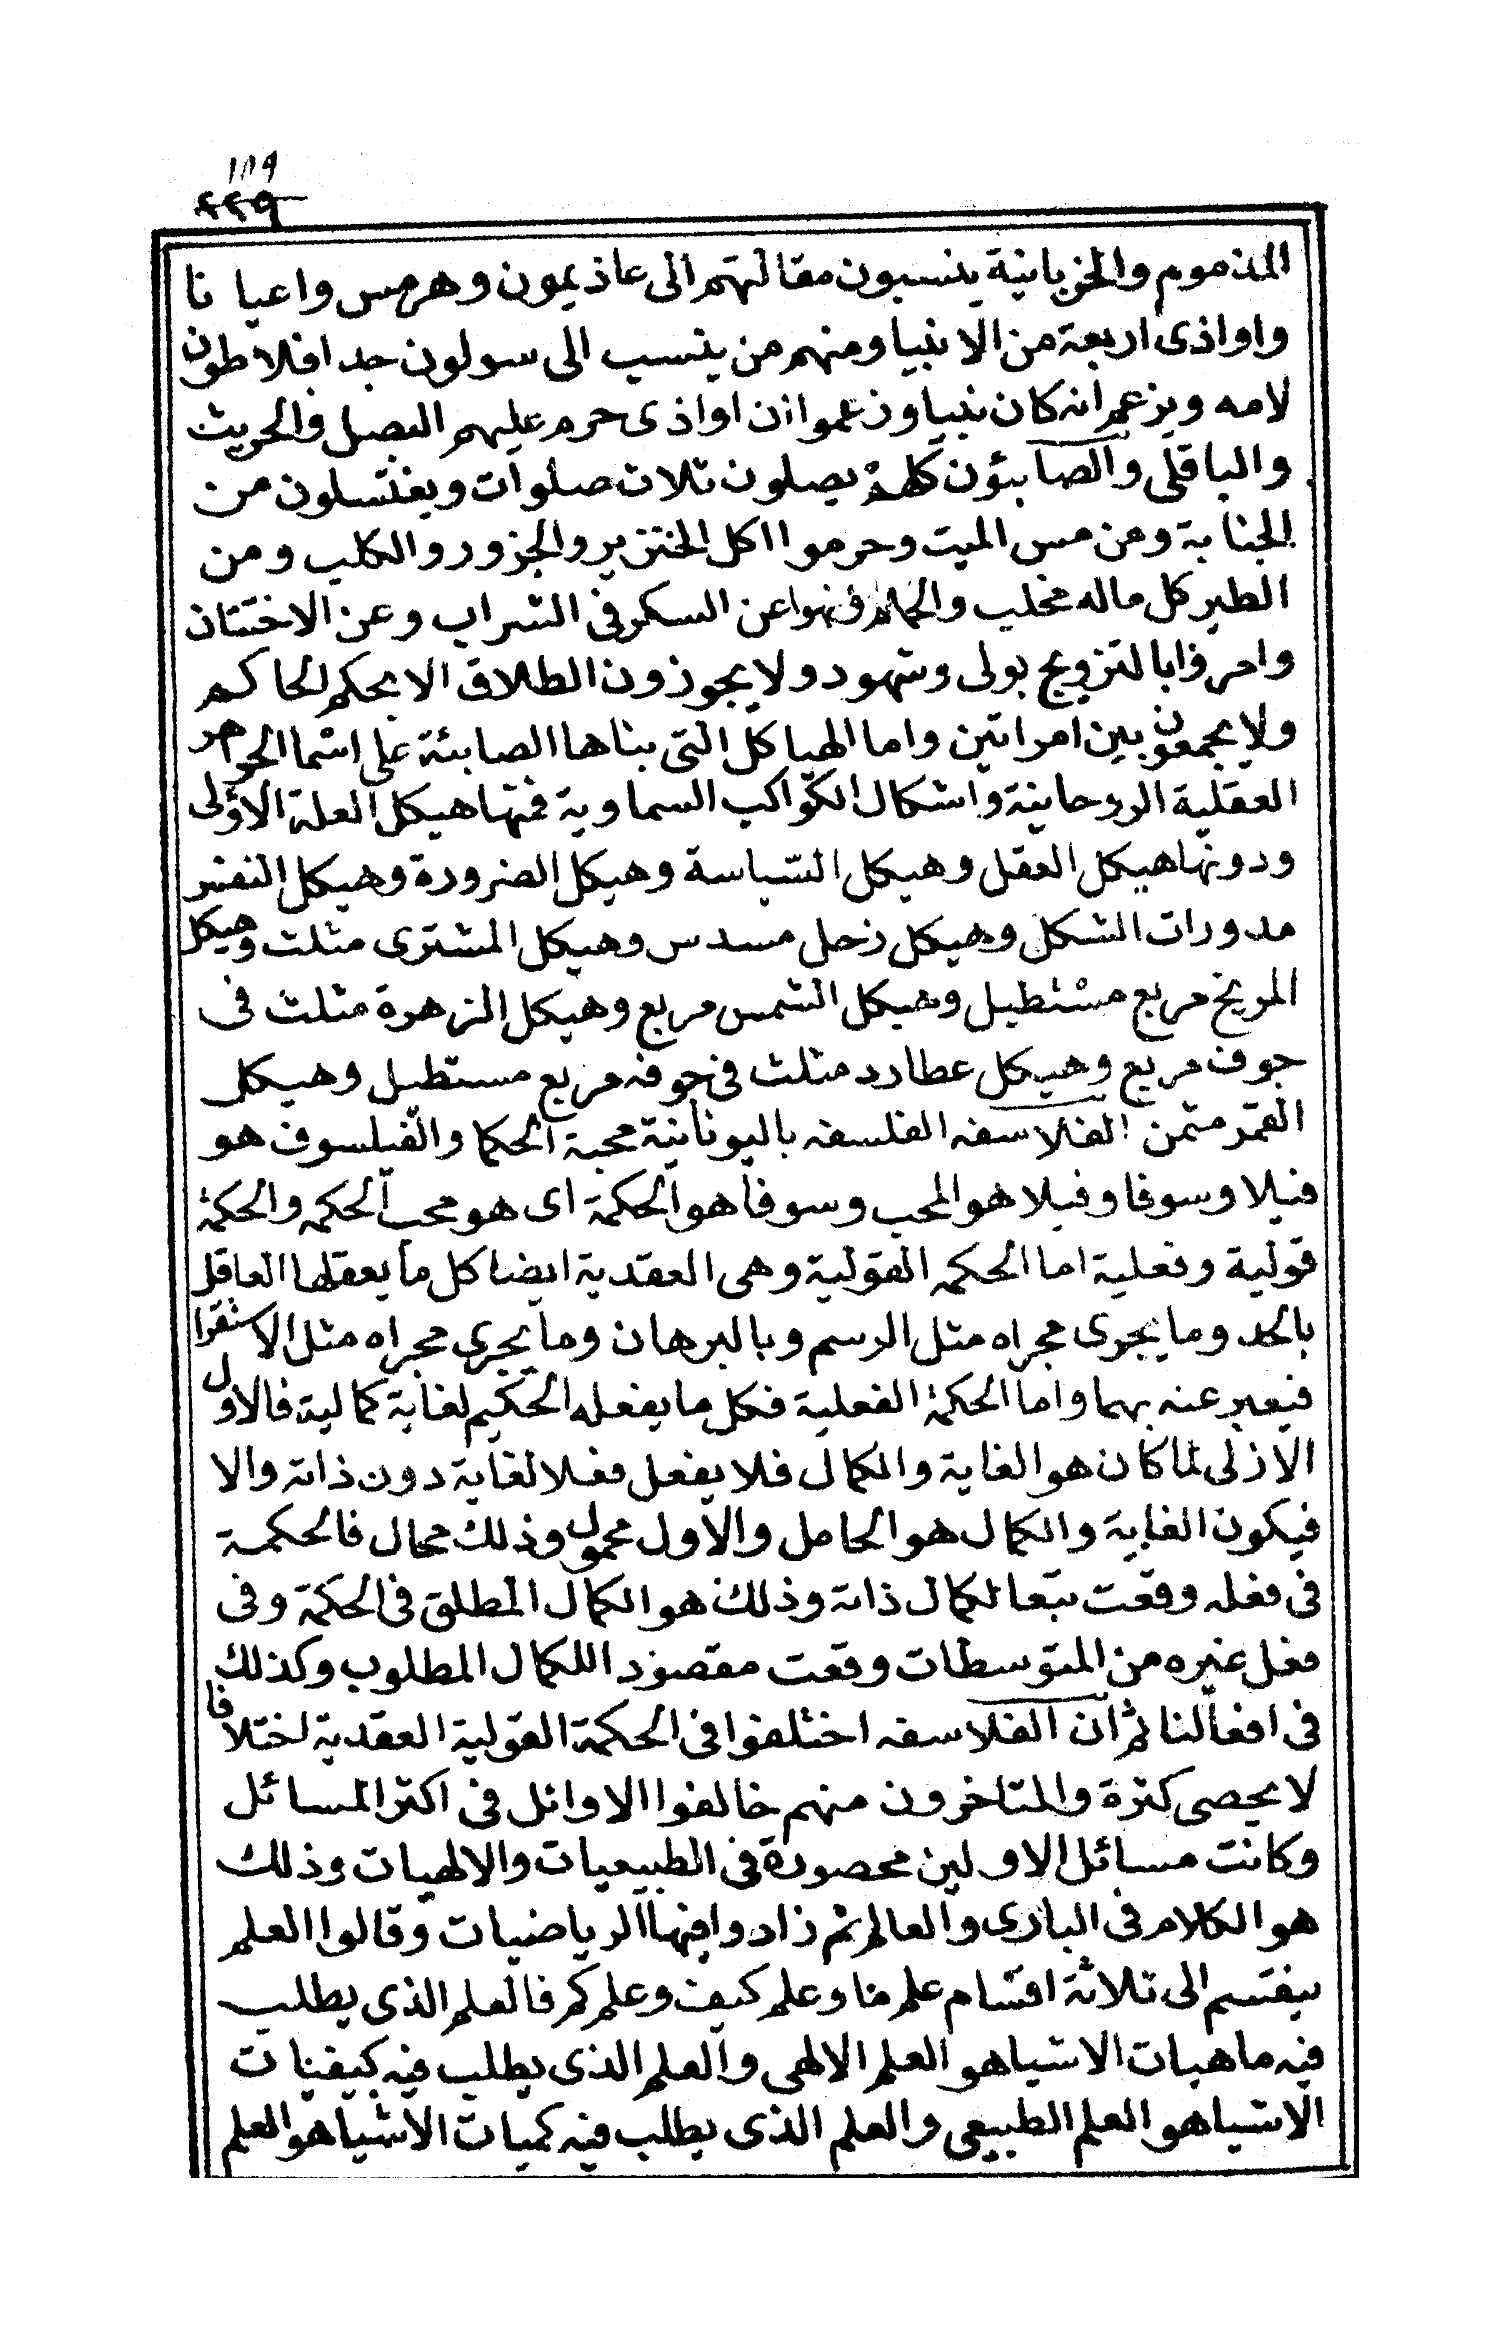 ١٨٩
٢٢٩
المذموم والخربانية ينسبون مقالتهم الى عاذيمون وهرمس واعيانا
واواذى اربعة من الانبيا ومنهم من ينسب الى سولون جد افلاطون
لامه ويزعم انه كان نبيا وزعموا ان اواذى حرم عليهم البصل والحريث
والباقلى والصابئون كلهم يصلون ثلاث صلوات ويغتسلون من
الجنابة ومن مس الميت وحرموا اكل الخنزير والجزور والكلب ومن
الطير كل ماله مخلب والحمام ونهوا عن السكر فى الشراب وعن الاختتان
وامروا بالتزويج بولى وشهود ولا يجوزون الطلاق الا بحكم الحاكم
ولا يجمعون بين امراتين واما الهياكل التى بناها الصابئة على اسما الجواهر
العقلية الروحانية واشكال الكواكب السماوية فمنها هيكل العلة الاولى
ودونها هيكل العقل وهيكل السياسة وهيكل الضرورة وهيكل النفس
مدورات الشكل وهيكل زحل مسدس وهيكل المشترى مثلث وهيكل
المريخ مربع مستطيل وهيكل الشمس مربع وهيكل الزهرة مثلث فى
جوف مربع وهيكل عطارد مثلث فى جوفه مربع مستطيل وهيكل
القمر مثمن الفلاسفه الفلسفه باليونانية محبة الحكما والفيلسوف هو
فيلا وسوفا وفيلا هو المحب وسوفا هو الحكمة اى هو محب الحكمه والحكمة
قولية وفعلية اما الحكمه القولية وهى العقدية ايضا كل ما يعقلها العاقل
بالحد وما يجرى مجراه مثل الرسم وبالبرهان وما يجرى مجراه مثل الاستقرا
فيعبر عنه بهما واما الحكمة الفعلية فكل ما يفعله الحكيم لغاية كمالية فالاول
الازلى لما كان هو الغاية والكمال فلا يفعل فعلا لغاية دون ذاته والا
فيكون الغاية والكمال هو الحامل والاول محمول وذلك محال فالحكمة
فى فعله وقعت تبعا لكمال ذاته وذلك هو الكمال المطلق فى الحكمة وفى
فعل غيره من المتوسطات وقعت مقصودا للكمال المطلوب وكذلك
فى افعالنا ثم ان الفلاسفه اختلفوا فى الحكمة القولية العقدية اختلافا
لا يحصى كثرة والمتاخرون منهم خالفوا الاوائل فى اكثر المسائل
وكانت مسائل الاولين محصورة فى الطبيعيات والالهيات وذلك
هو الكلام فى البارى والعالم ثم زادوا فيها الرياضيات وقالوا العلم
ينقسم الى ثلاثة اقسام علم ما وعلم كيف وعلم كم فالعلم الذى يطلب
فيه ماهيات الاشيا هو العلم الالهى والعلم الذى يطلب فيه كيفيات
الاشيا هو العلم الطبيعى والعلم الذى يطلب فيه كميات الاشيا هو العلم